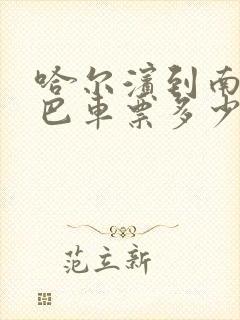 哈尔滨到南
巴车票多少
范立新